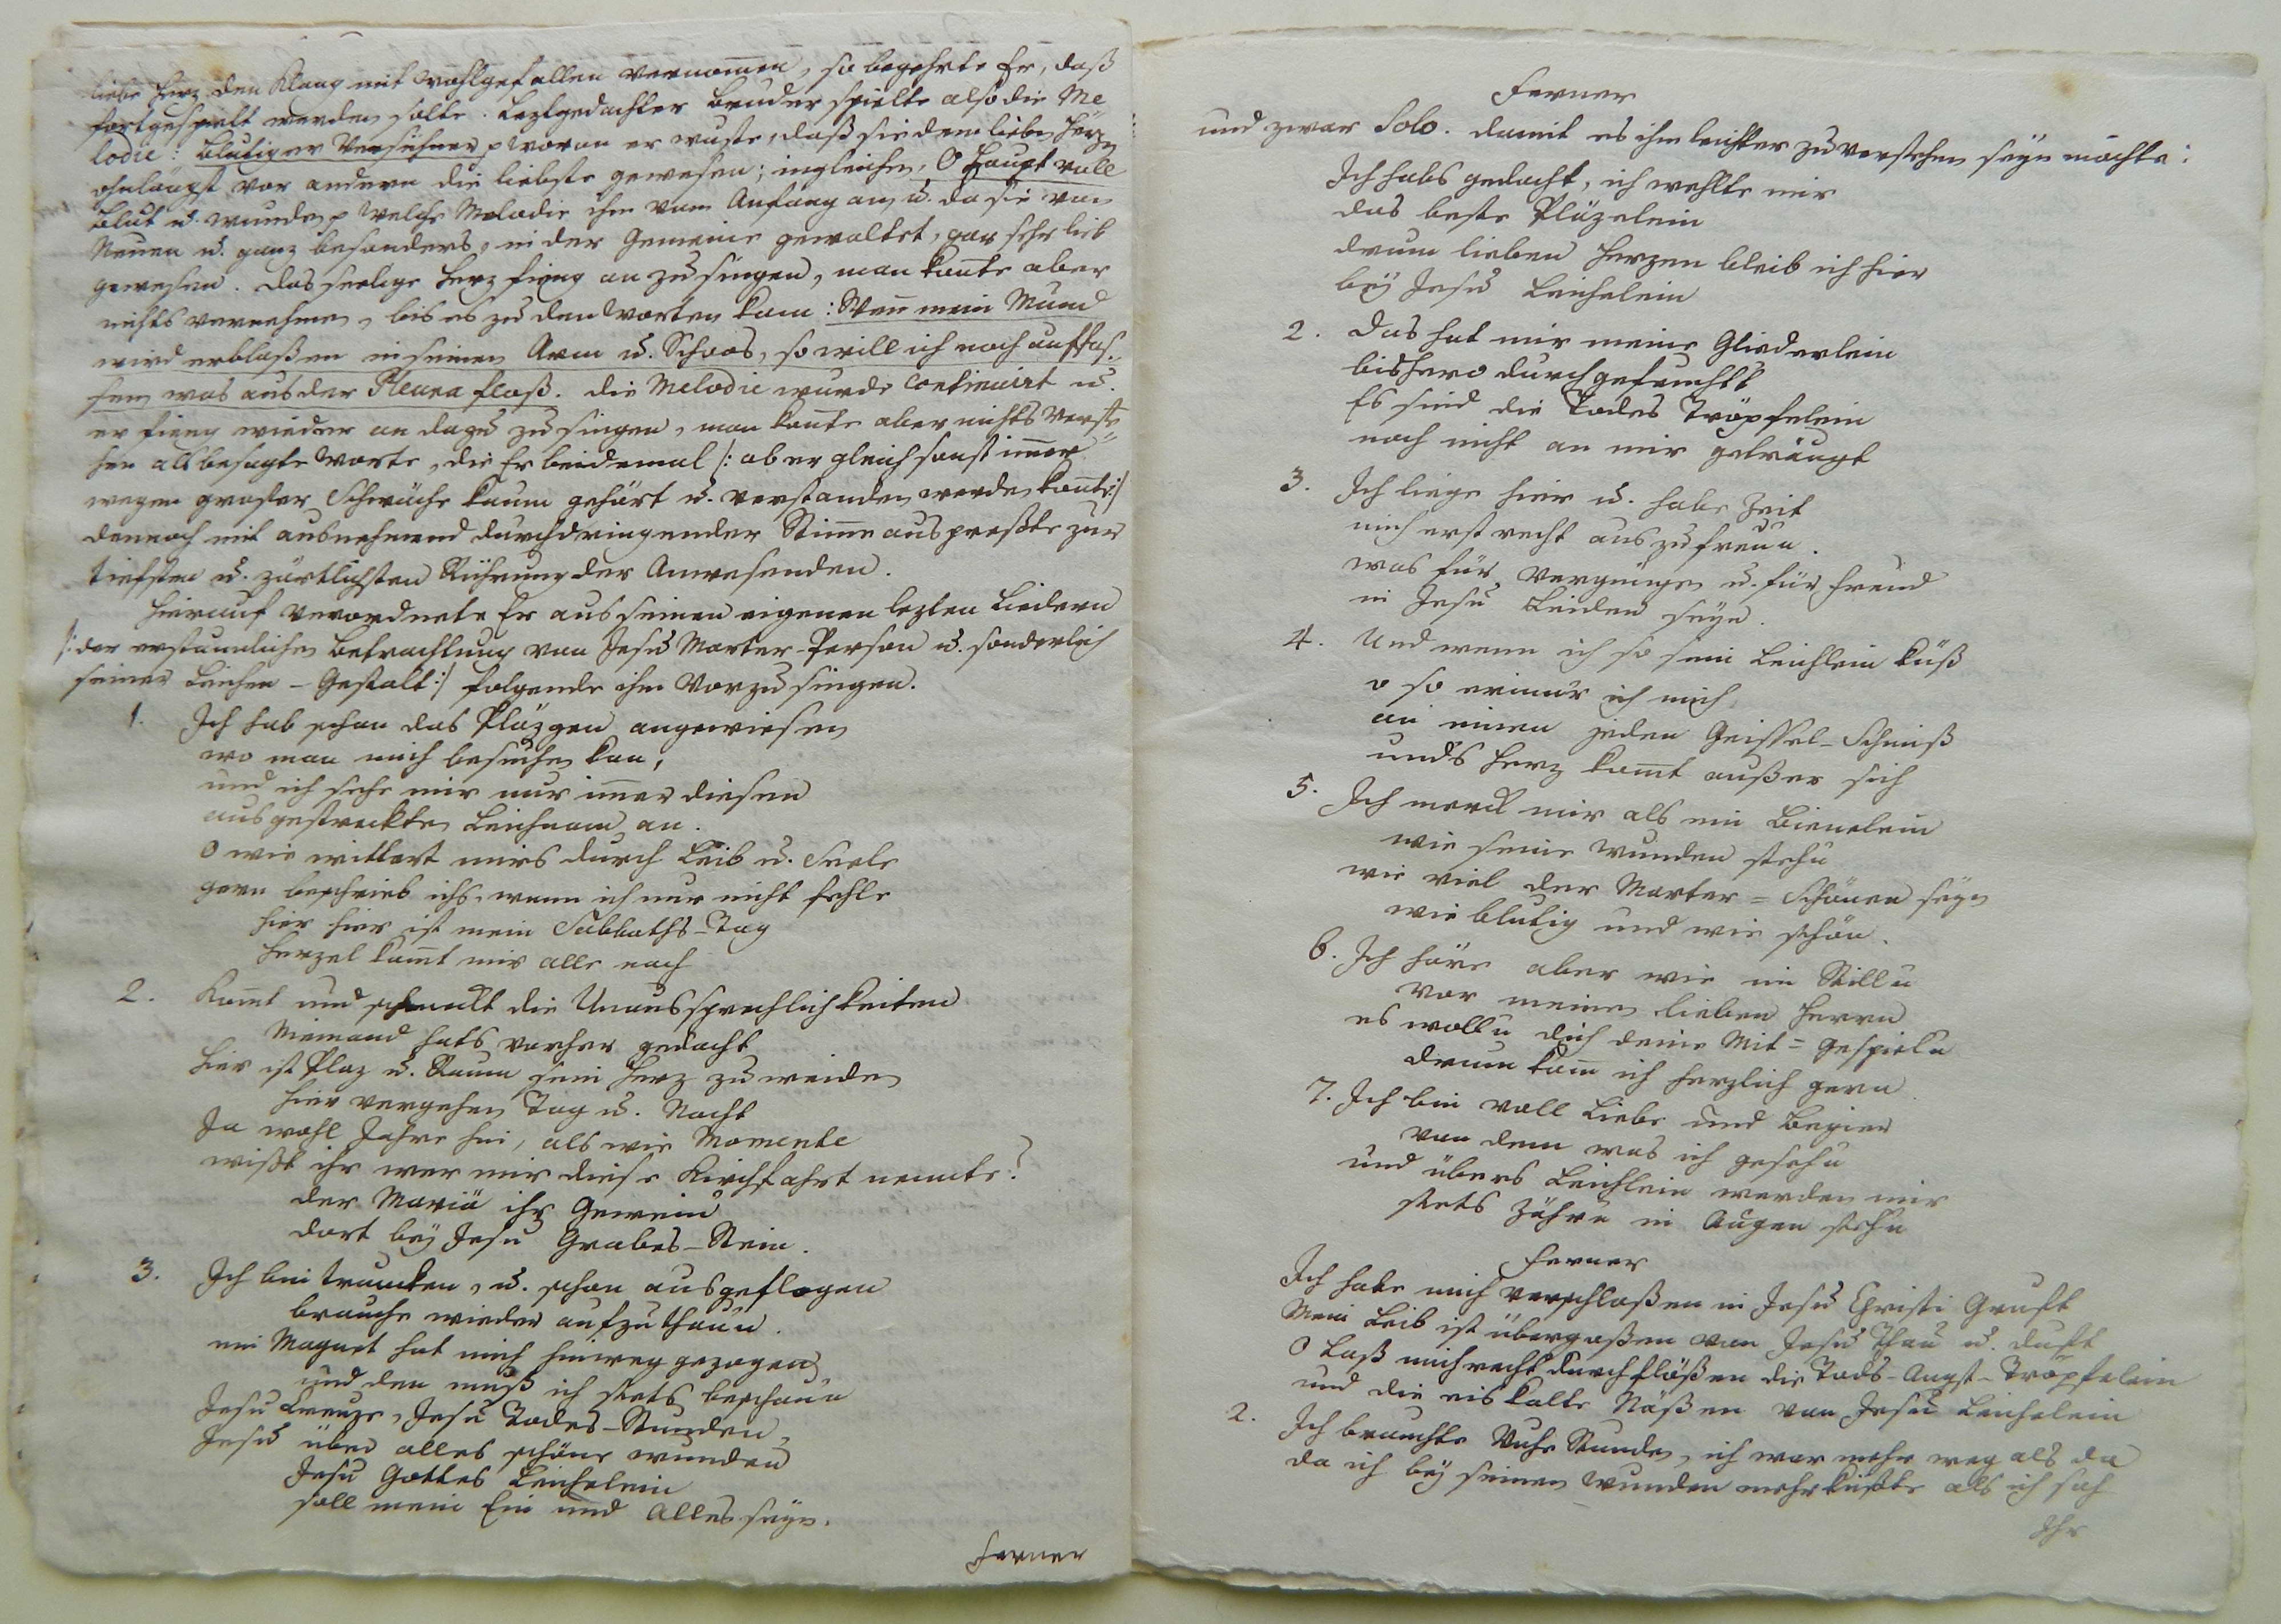 liebe Herz den Klang mit Wohlgefallen vernom̄en, so begehrte Er, daß
fortgespielt werden solte. Leztgedachter Bruder spielte also die Me
lodie: Blutiger Versühner p wovon er wuste, daß sie dem lieben Herzen
ohnlängst vor andern die liebste gewesen; ingleichen, O Haupt voll
Blut u. Wunden p welche Melodie ihm vom Anfang an, u. da sie von
Neuen u. ganz besonders, in der Gemeine gewaltet, gar sehr lieb
gewesen. Das seelige Herz fieng an zu singen, man kon̄te aber
nichts vernehmen, bis es zu den Worten kam: Wen̄ mein Mund
wird erblaßen in seinen Arm u. Schoos, so will ich noch auffas-
sen was aus der Pleura floß. Die Melodie wurde continuirt u.
er fieng wieder an dazu zu singen, man kon̄te aber nichts verste-
hen als besagte Worte, die Er beidemal /: ob er gleich sonst im̄er
wegen großer Schwäche kaum gehört u. verstanden werden kon̄te :/
dennoch mit ausnehmend durchdringender Stim̄e auspreßte zur
tiefsten u. zärtlichsten Rührung der Anwesenden.
Hierauf verordnete Er aus seinen eigenen lezten Liedern
/: der erstaunlichen Betrachtung von Jesu Marter-Person u. sonderlich
seiner Leichen-Gestalt :/ folgende ihm vorzusingen.
1. Ich hab schon das Pläzgen angewiesen
wo man mich besuchen kan,
und ich sehe mir nur im̄er diesen
ausgestreckten Leichnam an.
O wie wittert mirs durch Leib u. Seele
gern beschrieb ichs, wenn ich nur nicht fehle
hier hier ist mein Sabbaths-Tag
Herzel kom̄t mir alle nach
2. Kom̄t und schmeckt die Unaussprechlichkeiten
Niemand hats vorher gedacht
hier ist Plaz u. Raum sein Herz zu weiden
hier vergehen Tag u. Nacht
Ja wohl Jahre hin, als wie Momente
wißt ihr wer mir diese Kirchfahrt nennte?
der Mariä ihr Gewein
dort bey Jesu Grabes-Stein.
3. Ich bin truncken, u. schon ausgeflogen
brauche wieder aufzuthaun.
ein Magnet hat mich hinweg gezogen
und den muß ich stets beschaun
Jesu Creuze, Jesu Todes-Stunden,
Jesu über alles schöne Wunden
Jesu Gottes Leichelein
soll mein Ein und Alles seyn.
Ferner
Ferner
und zwar Solo. damit es ihm leichter zu verstehen seyn möchte:
Ich habs gedacht, ich wehlte mir
das beste Pläzelein
drum lieben Herzen bleib ich hier
bey Jesu Leichelein
2. Das hat mir meine Gliederlein
bishero durchgefeucht't
Es sind die Todes Tröpfelein
noch nicht an mir geträugt
3. Ich liege hier u. habe Zeit
mich erst recht auszufreun.
was für Vergnügen u. für Freud
in Jesu Leiden seyn.
4. Und wenn ich so sein Leichlein küß
o so erinn'r ich mich
an einen jeden Geissel-Schmiß
unds Herz kom̄t außer sich
5. Ich merck mir als ein Bienelein
wie seine Wunden stehn
wie viel der Marter=Schönen seyn
wie blutig und wie schön.
6. Ich höre aber wie im Still'n
von meinen lieben Herrn
es woll'n dich deine Mit=Gespiel'n
drum kom̄ ich herzlich gern.
7. Ich bin voll Liebe und Begier
von dem was ich geseh'n
und übers Leichlein werden mir
stets Zähr'n in Augen stehn
Ferner
Ich habe mich verschloßen in Jesu Christi Gruft
Mein Leib ist übergoßen von Jesu Thau u. Duft
O laß mich recht durchflößen die Tods-Angst-Tröpfelein
und die eiskalte Näßen von Jesu Leichelein
2. Ich brauchte Ruhe Stunden, ich war mehr weg als da
da ich bey seinen Wunden mehr küßte als ich sah
Ihr